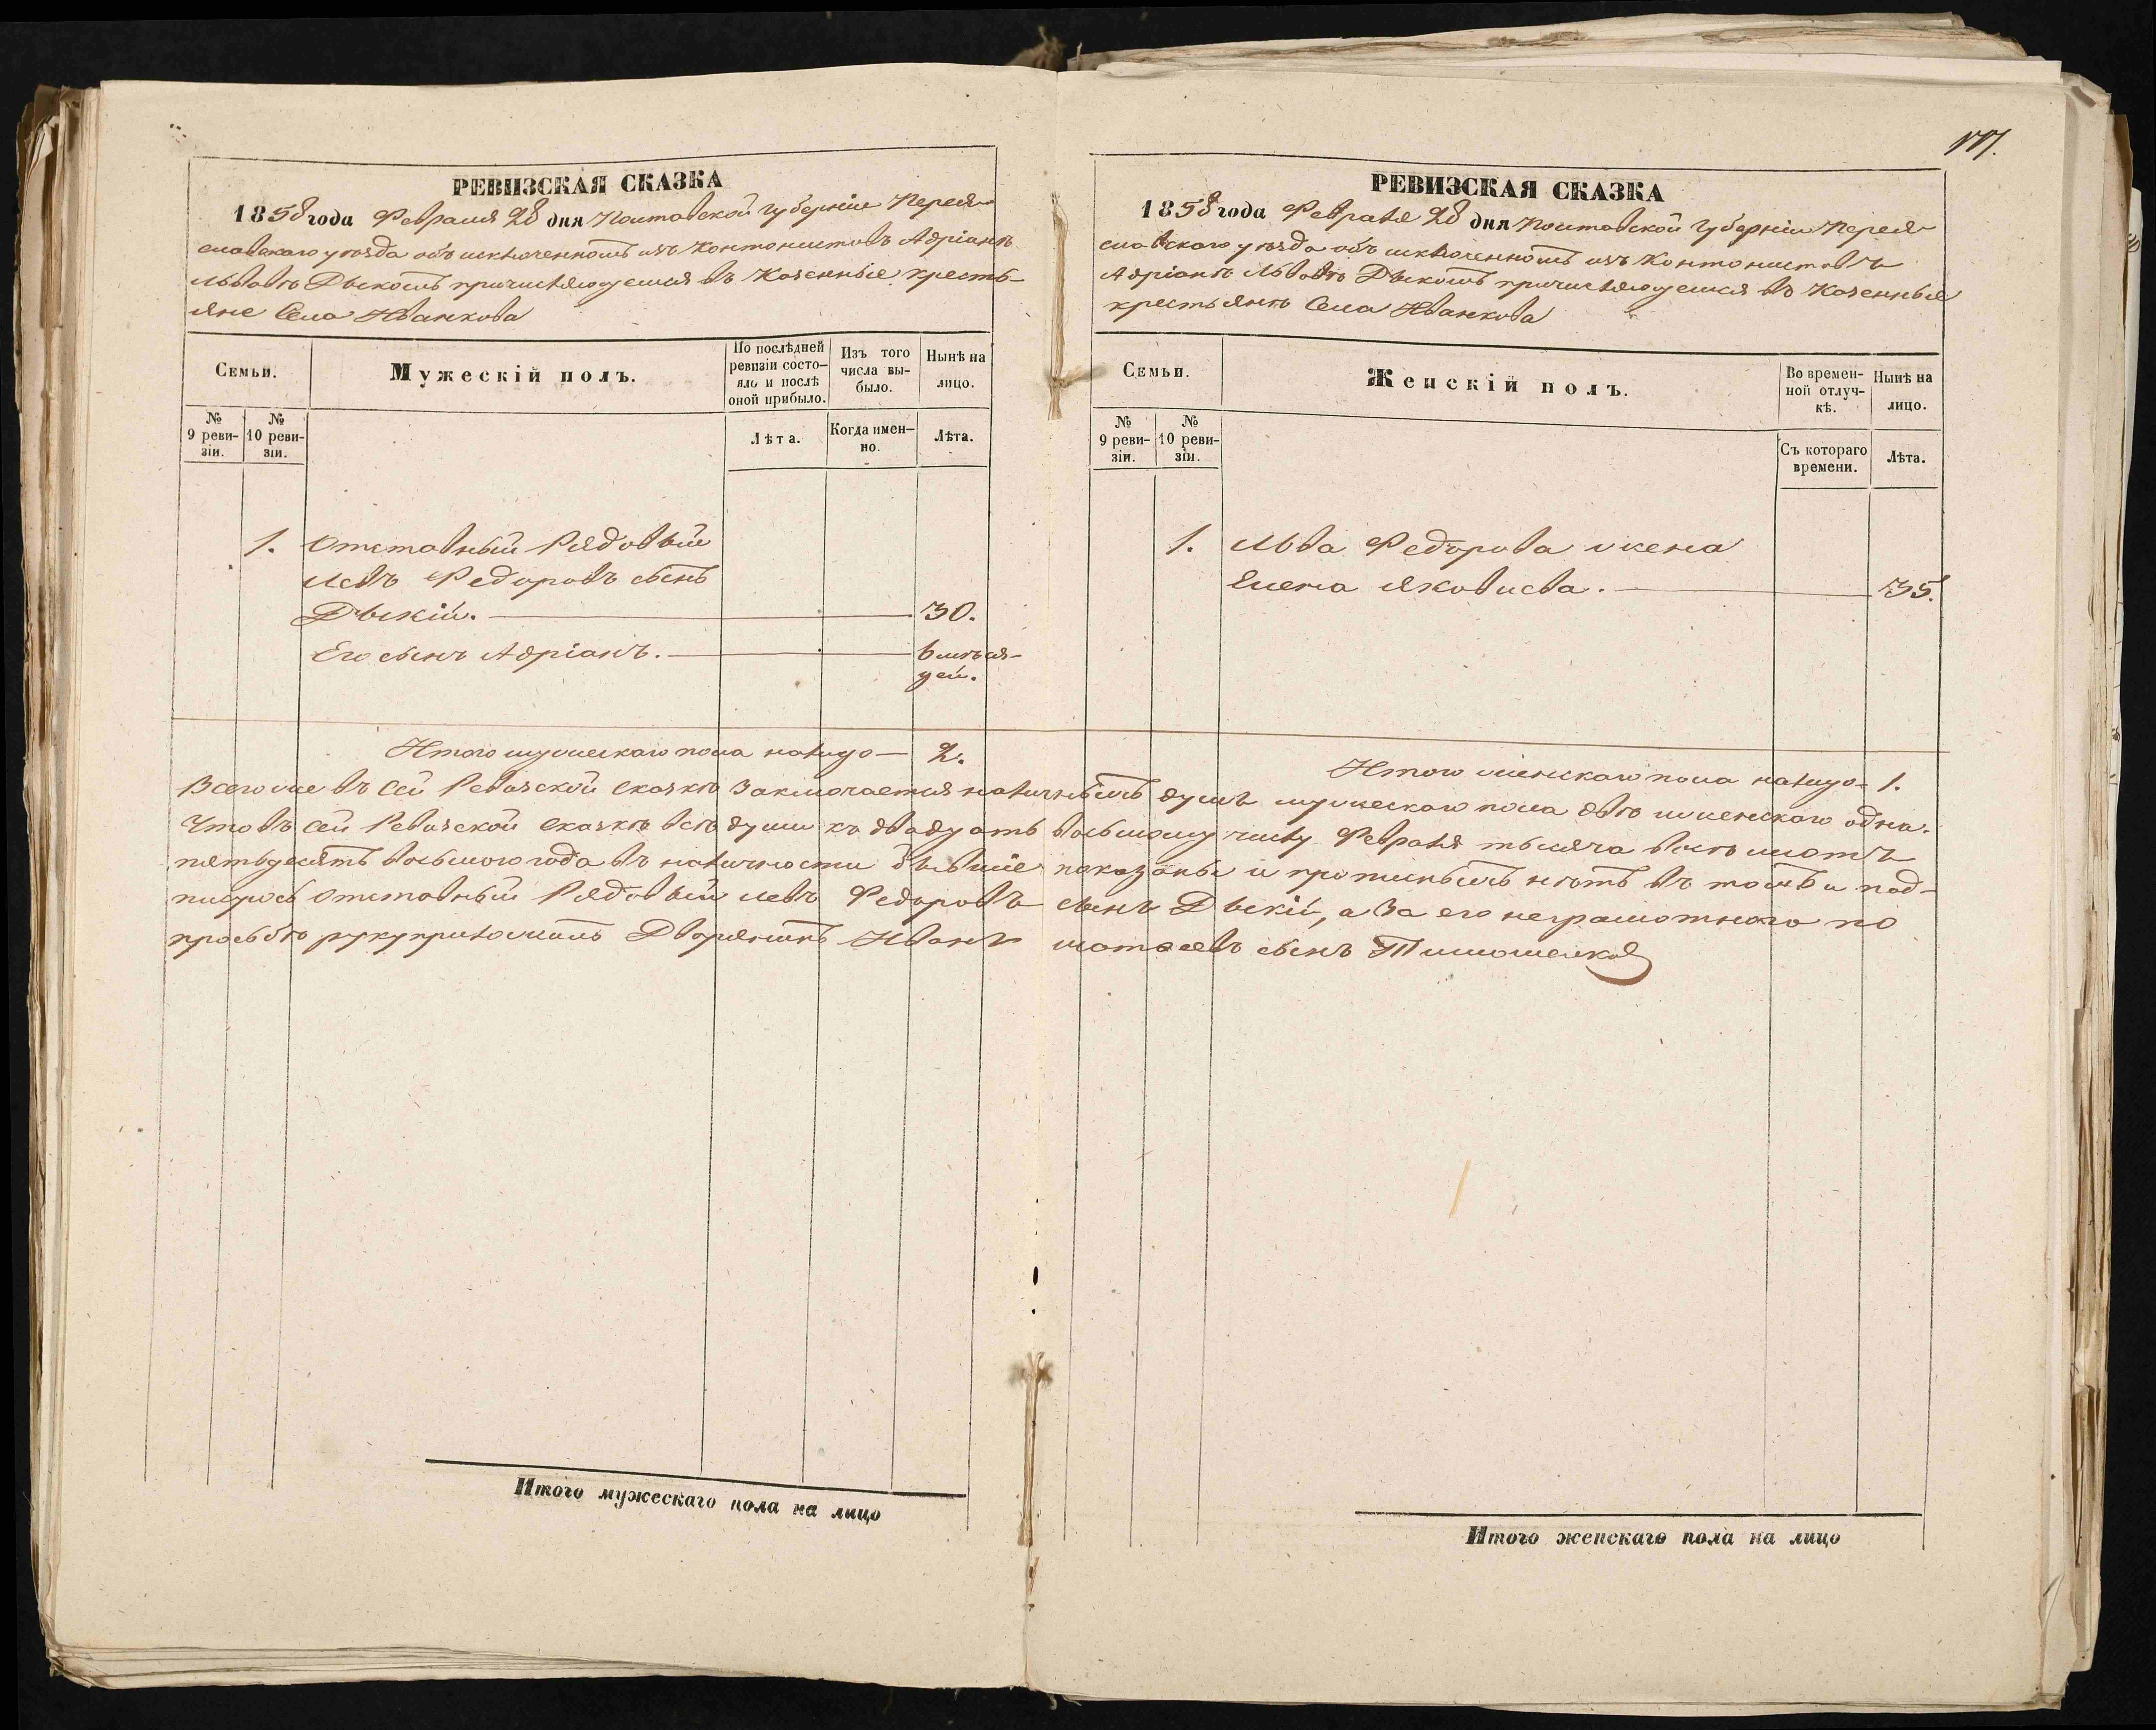 РЕВИЗСКАЯ СКАЗКА
1858 года Февраля 28 дня Полтавской Губерніи Перея-
славскаго уѣзда объ исключенномъ изъ Контонистовъ Адріанѣ
Львовѣ Дыкомъ причисляющемся въ Казенные кресть-
яне Села Иванкова
Семьи.
Мужескій полъ.
По послѣдней ревизіи состо-яло и послѣ оной прибыло.
Изъ того числа вы-было.
Нынѣ на лицо.
№ 9 реви-зіи.
№ 10 реви-зіи.
Лѣта.
Когда имен-но.
Лѣта.
1. Отставный Рядовый
Левъ Федоровъ сынъ
Дыкій. 30.
Его сынъ Адріанъ. 6 мѣся-
цей.
Итого мужескаго пола налицо 2.
177.
РЕВИЗСКАЯ СКАЗКА
1858 года Февраля 28 дня Полтавской Губерніи Перея-
славскаго уѣзда объ исключенномъ изъ Контонистовъ
Адріанѣ Львовѣ Дыкомъ причисляющемся въ Казенные
крестьянѣ Села Иванкова
Семьи.
Женскій полъ.
Во времен-ной отлуч-кѣ.
Нынѣ на лицо.
№ 9 реви-зіи.
№ 10 реви-зіи.
Съ котораго времени.
Лѣта.
1. Льва Федорова жена
Елена Яковлева. 35.
Итого женскаго пола налицо 1.
Всего же въ сей Ревизской сказкѣ заключается наличныхъ душъ мужескаго пола двѣ и женскаго одна.
Что въ сей Ревизской сказкѣ всѣ души къ двадцать восьмому числу Февраля тысяча восемьсотъ
пятьдесятъ восьмого года въ наличности бывшіе показаны и прописныхъ нѣтъ въ томъ и под-
пищось отставный Рядовый Левъ Федоровъ сынъ Дыкій, а за его неграмотнаго по
прозьбѣ рукуприложилъ Дворянинъ Иванъ Матвеевъ сынъ Тимошенков
Итого мужескаго пола на лицо
Итого женскаго пола на лицо